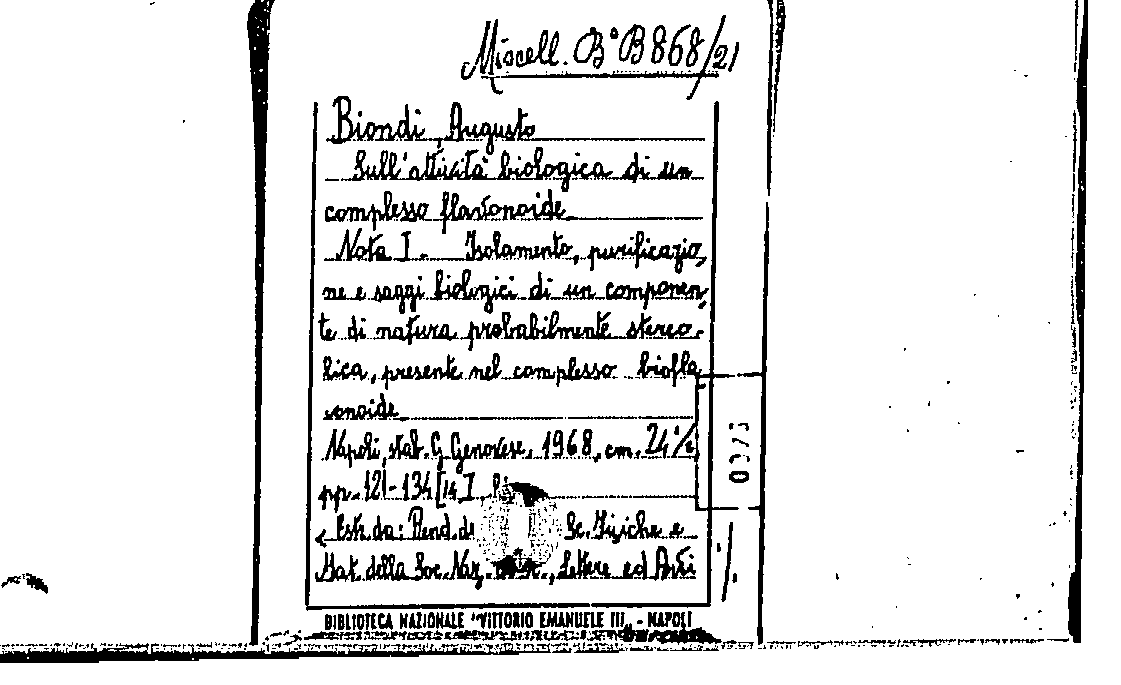 Miscell. B° B 868/21
Biondi, Augusto
Sull'attività biologica di un
complesso flavonoide
Nota I. Isolamento, purificazio,
ne e saggi biologici di un componen,
te di natura probabilmente stereo-
lica, presente nel complesso biofla
vonoide
Napoli, stab. G. Genovese, 1968, cm. 24½
pp. 121-134 [14],
Estr. da: Rend. de Sc. Fisiche e
Mat. della Soc. Naz. Lettere ed Arti
BIBLIOTECA NAZIONALE "VITTORIO EMANUELE III" - NAPOLI